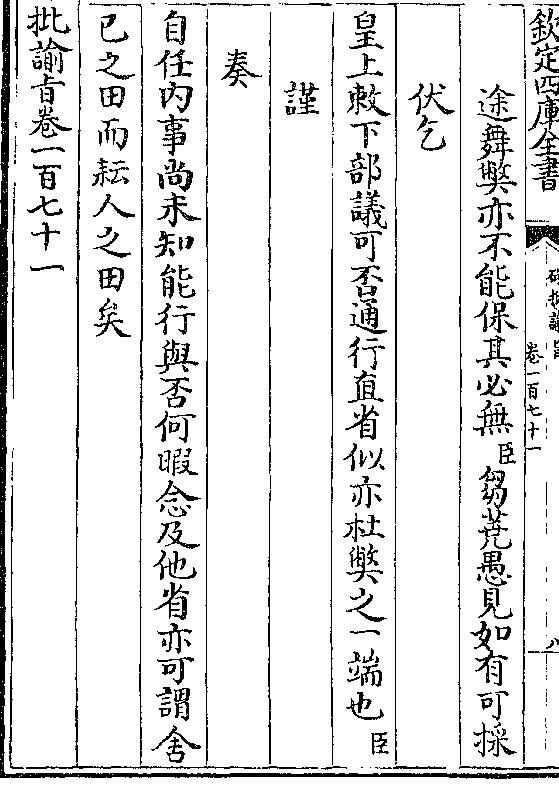 欽定四庫全書
硃批諭旨
卷一百七十一
八
途舞弊亦不能保其必無臣芻蕘愚見如有可採
伏乞
皇上敕下部議可否通行直省似亦杜弊之一端也臣
謹
奏
自任内事尚未知能行與否何暇念及他省亦可謂舍
已之田而耘人之田矣
批諭旨卷一百七十一